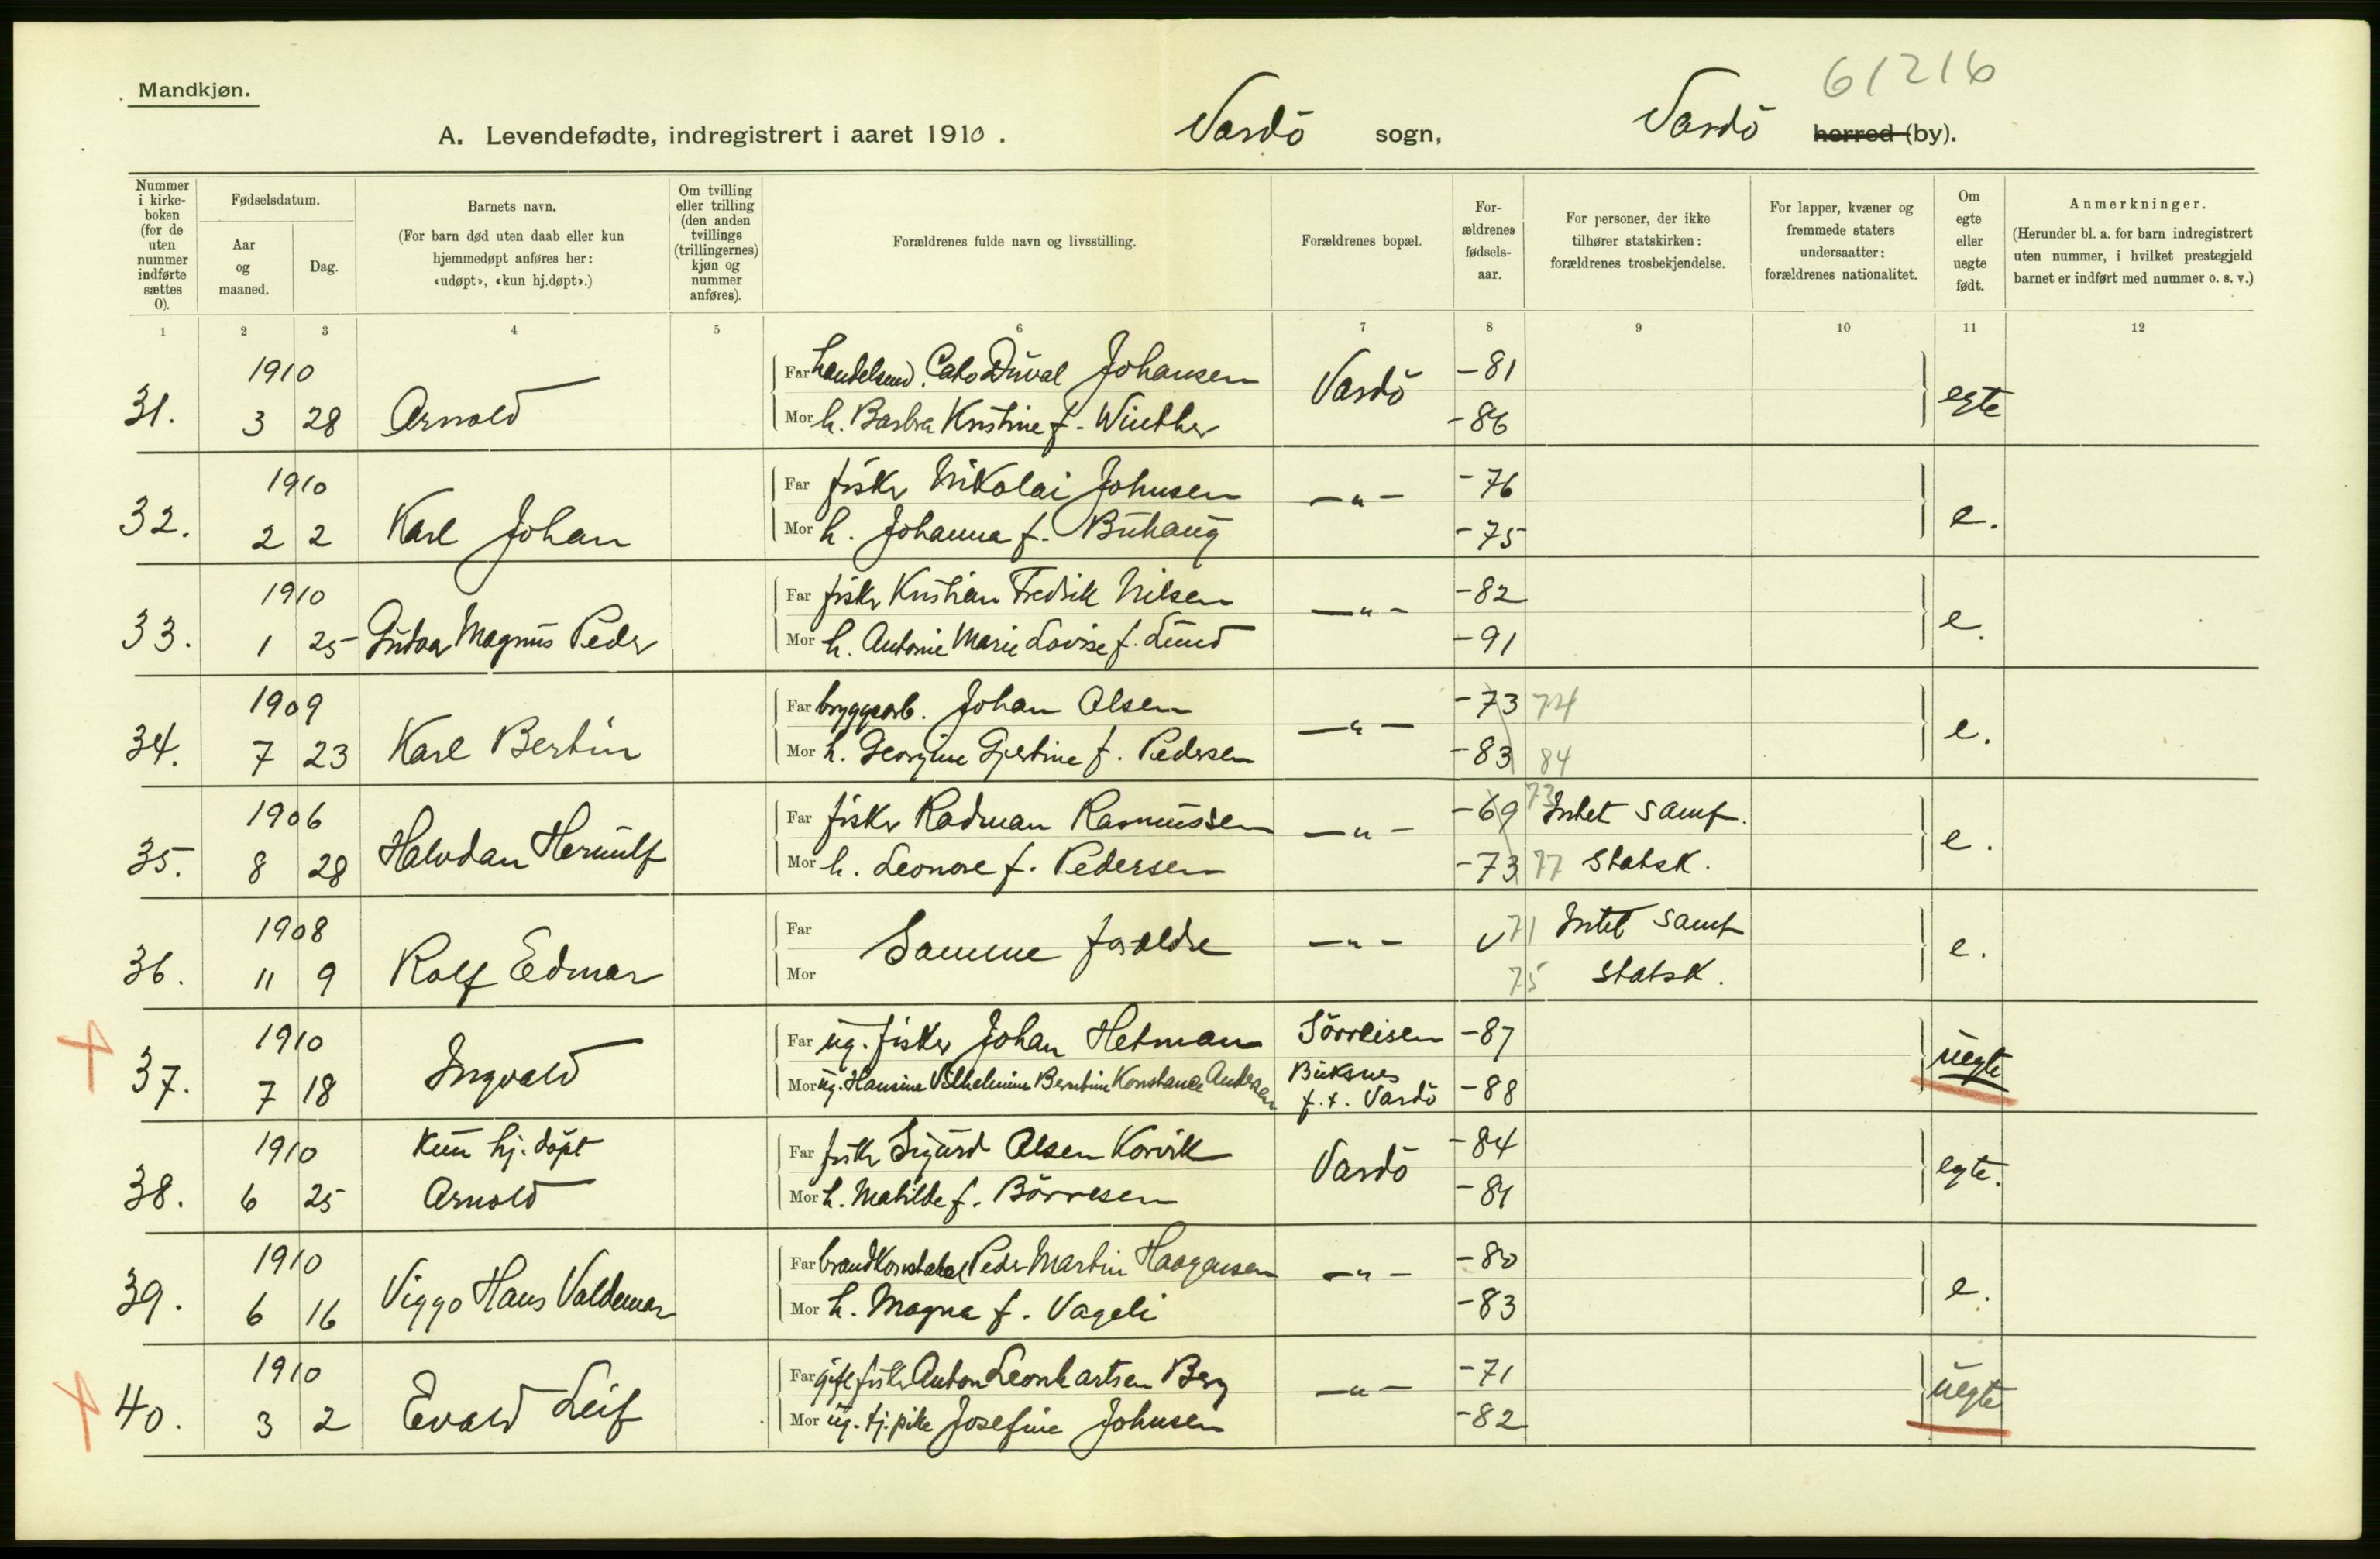 61216
Mandkjøn.
A. Levendefødte, indregistrert i aaret 1910. Vardö sogn, Vardö herred (by).
Nummer i kirke-boken (for de uten nummer indførte sættes 0).
Fødselsdatum.
Aar og maaned.
Dag.
Barnets navn.
(For barn død uten daab eller kun hjemmedøpt anføres her: «udøpt», «kun hj.døpt».)
Om tvilling eller trilling (den anden tvillings (trillingernes) kjøn og nummer anføres).
Forældrenes fulde navn og livsstilling.
Forældrenes bopæl.
For-ældrenes fødsels-aar.
For personer, der ikke tilhører statskirken: forældrenes trosbekjendelse.
For lapper, kvæner og fremmede staters undersaatter: forældrenes nationalitet.
Om egte eller uegte født.
Anmerkninger.
(Herunder bl. a. for barn indregistrert uten nummer, i hvilket prestegjeld barnet er indført med nummer o. s. v.)
1 2 3 4 5 6 7 8 9 10 11 12
1910 Far handelsmd. Cato Düval Johansen Vardö -81
31. 3 28 Arnold Mor h. Barbra Kristine f. Winther -86 egte
1910 Far fisker Nikolai Johnsen —"— -76
32. 2 2 Karl Johan Mor h. Johanna f. Buhaug -75 e.
1910 Far fisker Kristian Fredrik Nilsen —"— -82
33. 1 25 Magnus Peder Mor h. Antonie Marie Lovise f. Lund -91 e.
1909 Far bryggearb. Johan Olsen —"— -73 74
34. 7 23 Karl Bertin Mor h. Georgine Gjertine f. Pedersen -83 84 e.
1906 Far fisker Radman Rasmussen —"— -69 73 Intet samf.
35. 8 28 Halvdan Hermulf Mor h. Leonore f. Pedersen -73 77 Statsk. e.
1908 Far Samme forældre —"— 71 Intet samf
36. 11 9 Rolf Edmar Mor 75 Statsk. e.
1910 Far ug. fisker Johan Hetman Sörreisen -87
37. 7 18 Ingvald Mor ug. Hansine Vilhelmine Berntine Konstance Andersen Buksnes f.t. Vardö -88 uegte
1910 Kun hj. döpt Far fisker Sigurd Olsen Korvik Vardö -84
38. 6 25 Arnold Mor h. Matilde f. Börresen -81 egte.
1910 Far brandkonstabel Peder Martin Haagensen —"— -80
39. 6 16 Viggo Hans Valdemar Mor h. Magna f. Vageli -83 e.
1910 Far gift fisker Anton Leonhartsen Berg —"— -71
40. 3 2 Evald Leif Mor ug. tj. pike Josefine Johnsen -82 uegte